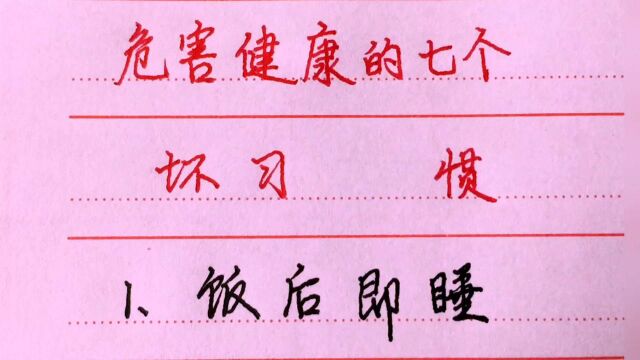 危害健康的七个
坏习 惯
1、饭后即睡